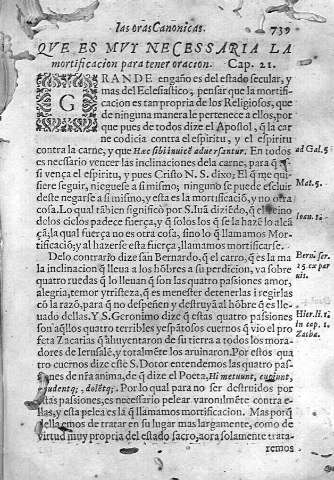 las oras Canonicas. 739
QVE ES MVY NECESSARIA LA
mortificacion para tener oracion. Cap. 21.
GRANDE engaño es del estado secular, y
mas del Eclesiastico, pensar que la mortifi-
cacion es tan propria de los Religiosos, que
de ninguna manera le pertenece a ellos, por
que pues de todos dize el Apostol, q̃ la car
ne codicia contra el espiritu, y el espiritu
contra la carne, y que Hæc sibi inuicẽ aduersantur. En todos ad Gal. 5
es necessario vencer las inclinaciones dela carne, para q̃
si vença el espiritu, y pues Cristo N. S. dixo; El q̃ me qui-
siere seguir, nieguese a si mismo; ninguno se puede escluir Mat. 5.
deste negarse a si mismo, y esta es la mortificaciõ, y no otra
cosa. Lo qual tãbien significò por S. Iuã diziẽdo, q̃ el reino
delos cielos padece fuerça, y q̃ solos los q̃ se la hazẽ lo alcã
çã, la qual fuerça no es otra cosa, sino lo q̃ llamamos Mor-
tificaciõ; y al hazerse esta fuerça, llamamos mortificarse.
Delo contrario dize san Bernardo, q̃ el carro, q̃ es la ma
la inclinaciõ q̃ lleua a los hõbres a su perdicion, va sobre
quatro ruedas q̃ lo lleuan q̃ son las quatro passiones amor,
alegria, temor y tristeza, q̃ es menester detenerlas i regirlas
cõ la razõ, para q̃ no despeñen y destruyã al hõbre q̃ es lle-
uado dellas. Y S. Geronimo dize q̃ estas quatro passiones Hier. li. 1.
son aq̃llos quatro terribles y espãtosos cuernos q̃ vio el pro in cap. 1.
feta Zacarias q̃ ahuyentaron de su tierra a todos los mora-
dores de Ierusalẽ, y totalmẽte los aruinaron. Por estos qua
tro cuernos dize estè S. Dotor entendemos las quatro pas-
siones de nr̃a anima, de q̃ dize el Poeta, Hi metuunt, cupiunt,
gaudentq;, dolẽtq;. Por lo qual para no ser destruidos por
estas passiones, es necessario pelear varonilmẽte contra e-
llas, y esta pelea es la q̃ llamamos mortificacion. Mas porq̃
della emos de tratar en su lugar mas largamente, como de
virtud muy propria del estado sacro, aora solamente trata-
remos